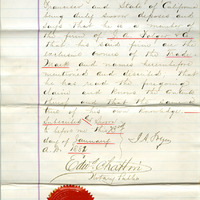 and State of California
being duly sworn deposes and
says that he is a member of
the firm of J. A. Folger & Co.
that said firm are the
exclusive owners of the Trade
Mark and names hereinbefore
mentioned and described, that
he has read the foregoing
claim and knows the contents
thereof and that the same is
true of his own knowledge
Subscribed & Sworn to
before me this
day of January
A.D. 1882
J. A. Folger
Notary Public